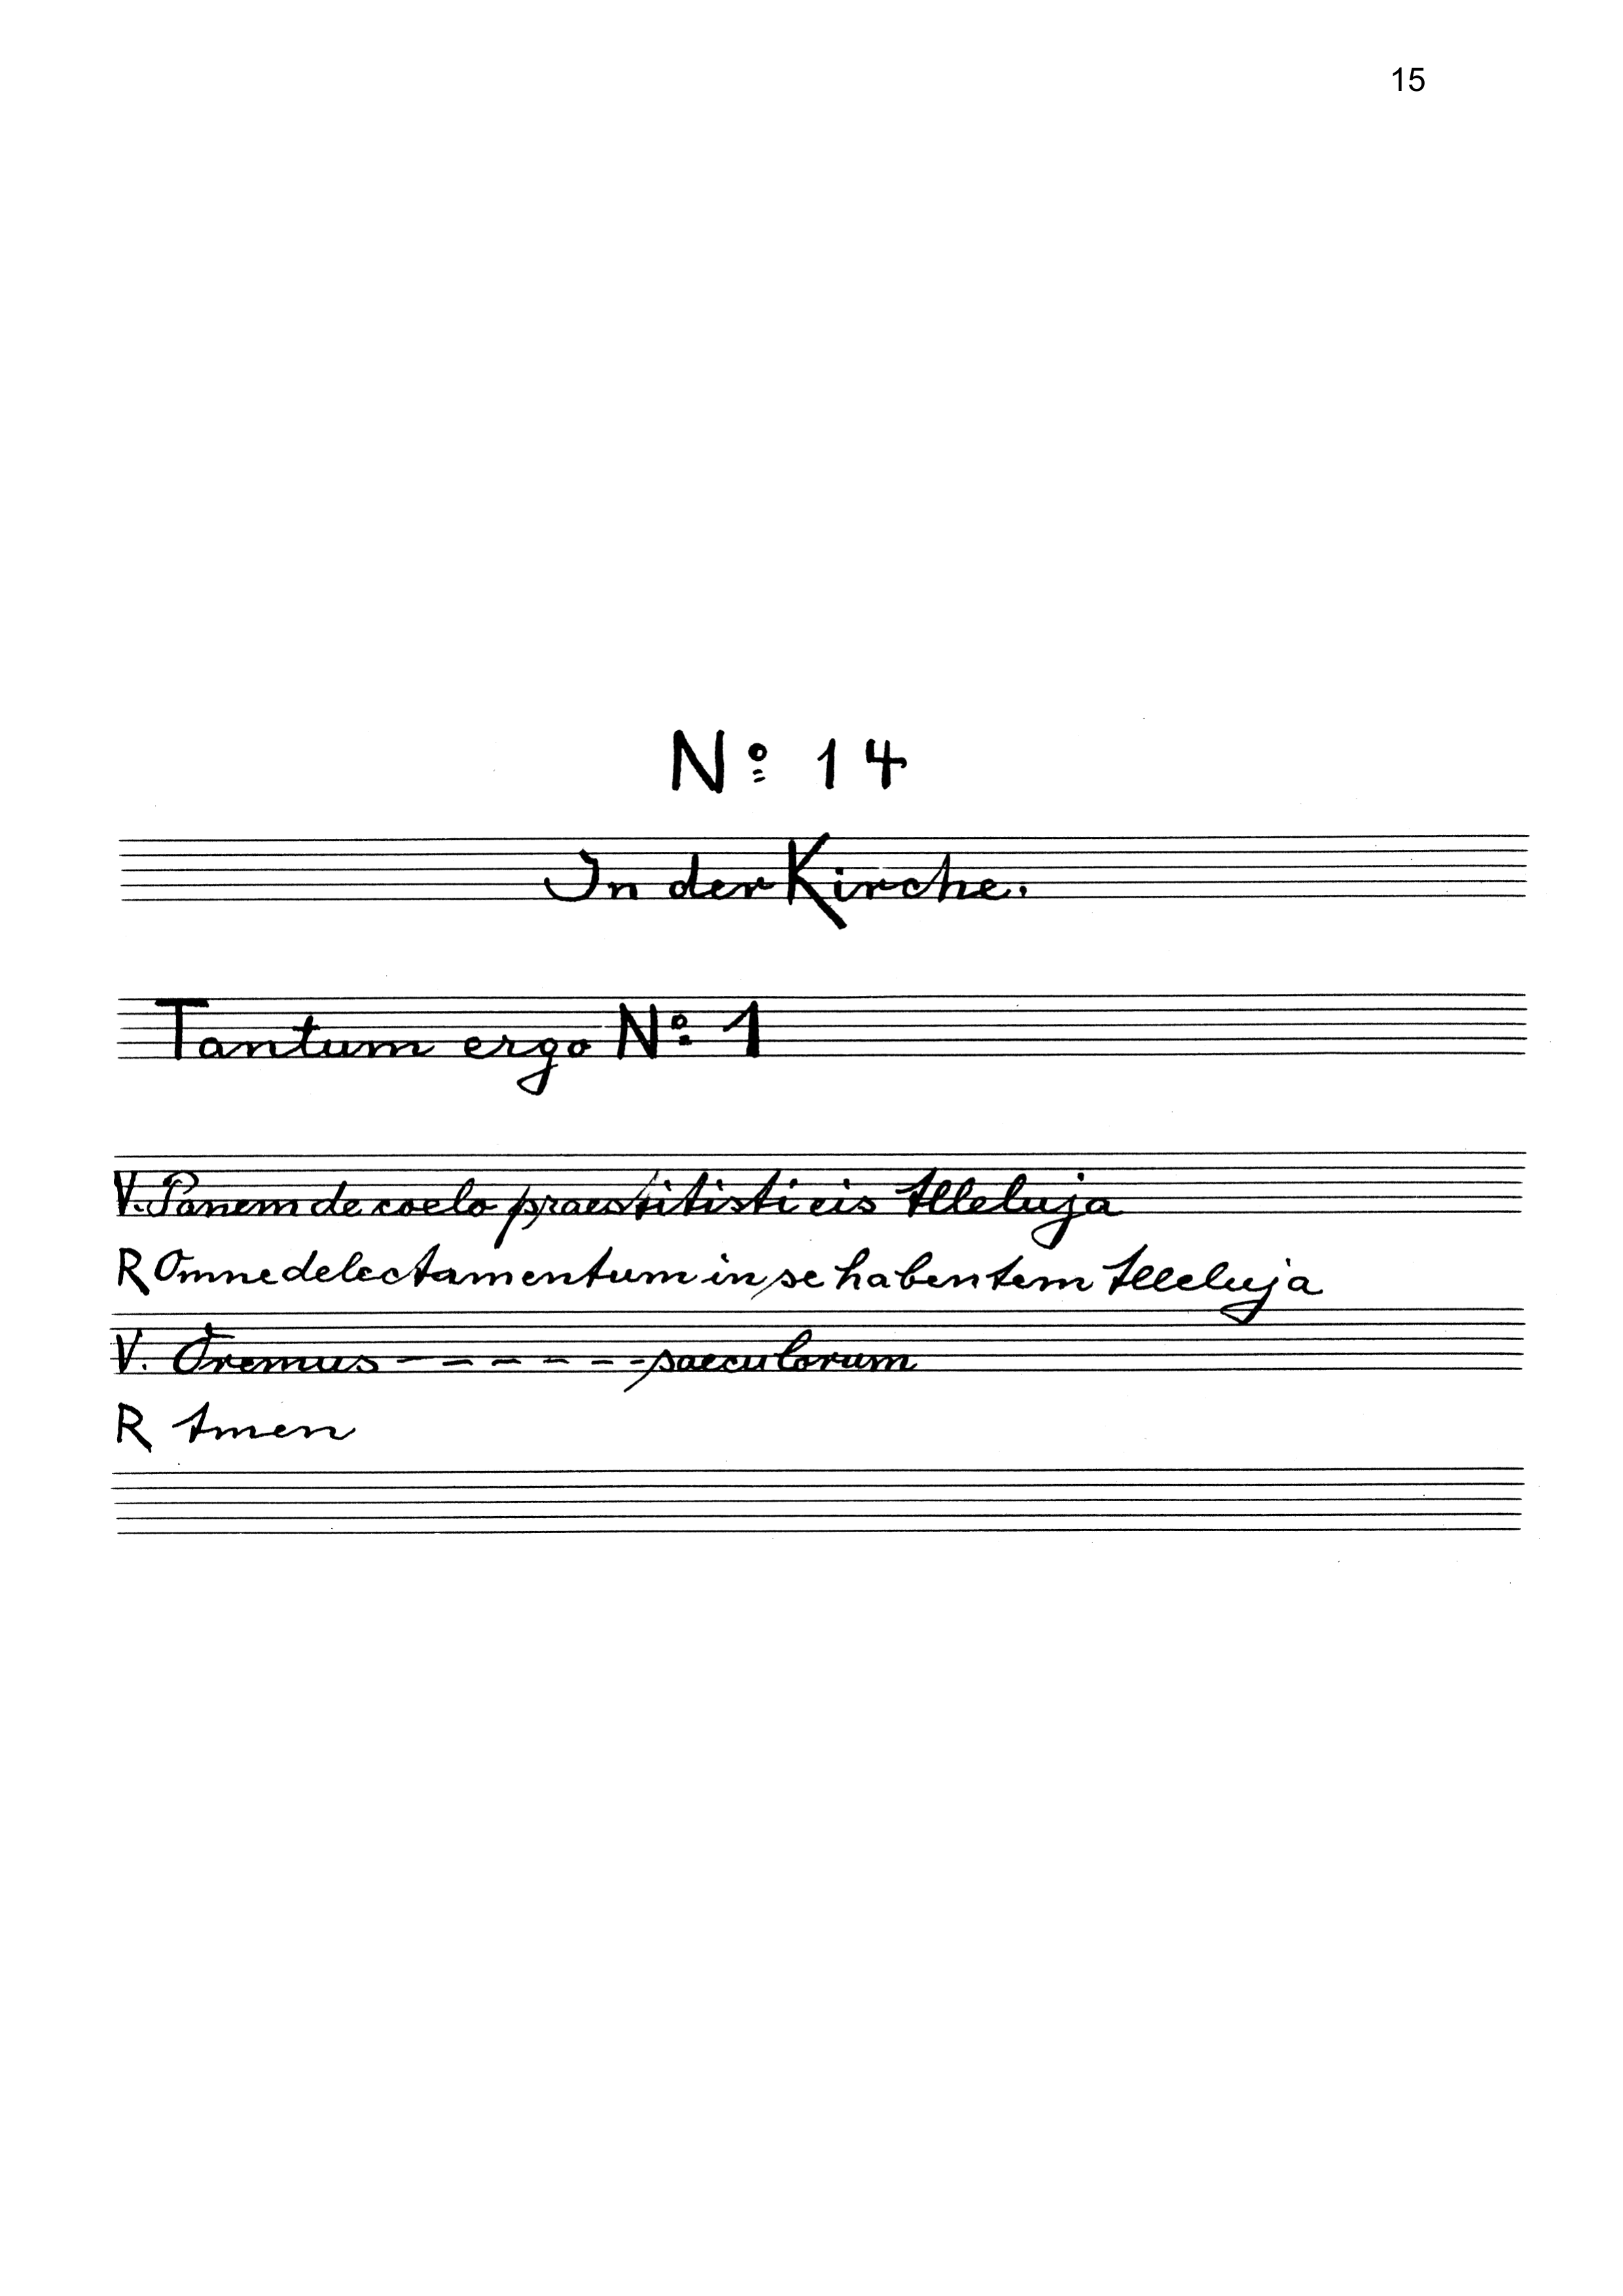 15
Nº 14
In der Kirche.
Tantum ergo Nº 1
V. Panem de coelo praestitisti eis Alleluja
R Omne delectamentum in se habentem Alleluja
V. Oremus - - - - - - saeculorum
R Amen